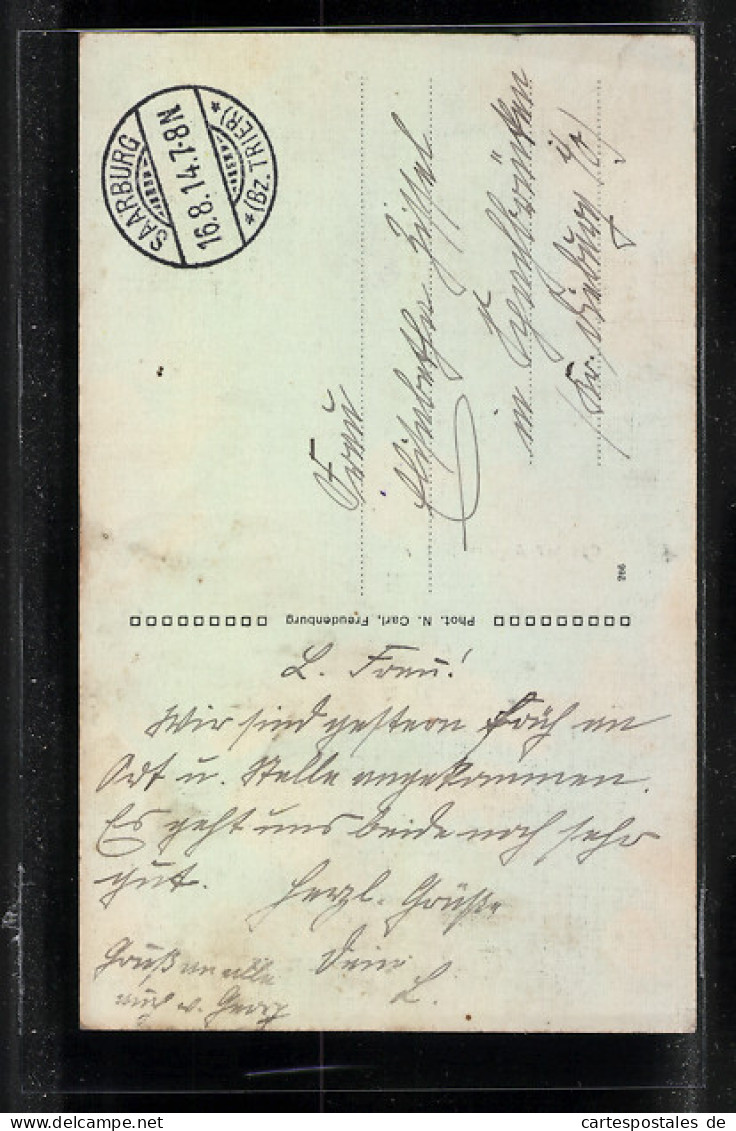 SAARBURG
16.8.14.7-8N
*(Bz. TRIER)*
Frau
Elisabetha
in
Kr. Bitburg
266
Phot. N. Carl, Freudenburg
L. Frau!
Wir sind gestern früh an
Ort u. Stelle angekommen.
Es geht uns beide noch sehr
gut. Herzl. Grüße
Gruß an alle Dein
auch v. Georg L.
cartespostales de